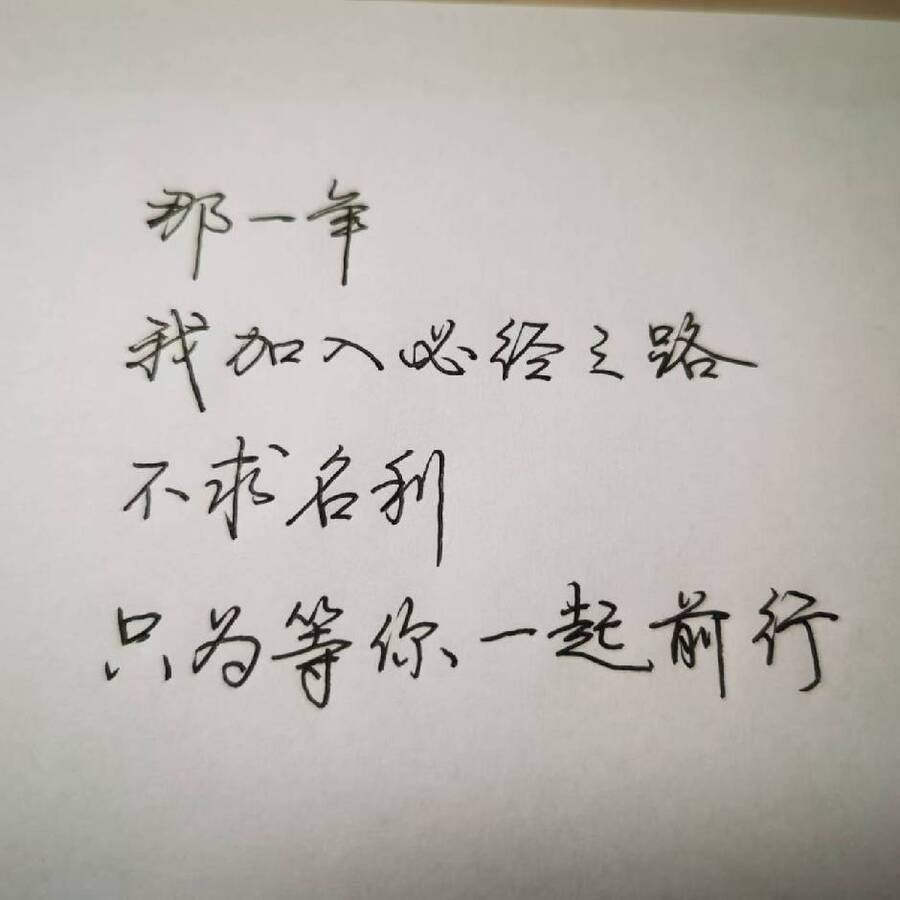 那一年
我加入必经之路
不求名利
只为等你一起前行